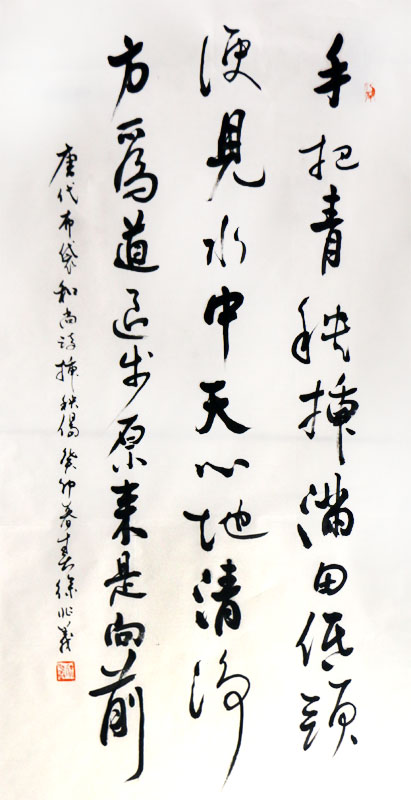 手把青秧插滿田低頭
便見水中天心地清净
方爲道退步原来是向前
唐代布袋和尚诗插秧偈癸卯春徐兆義